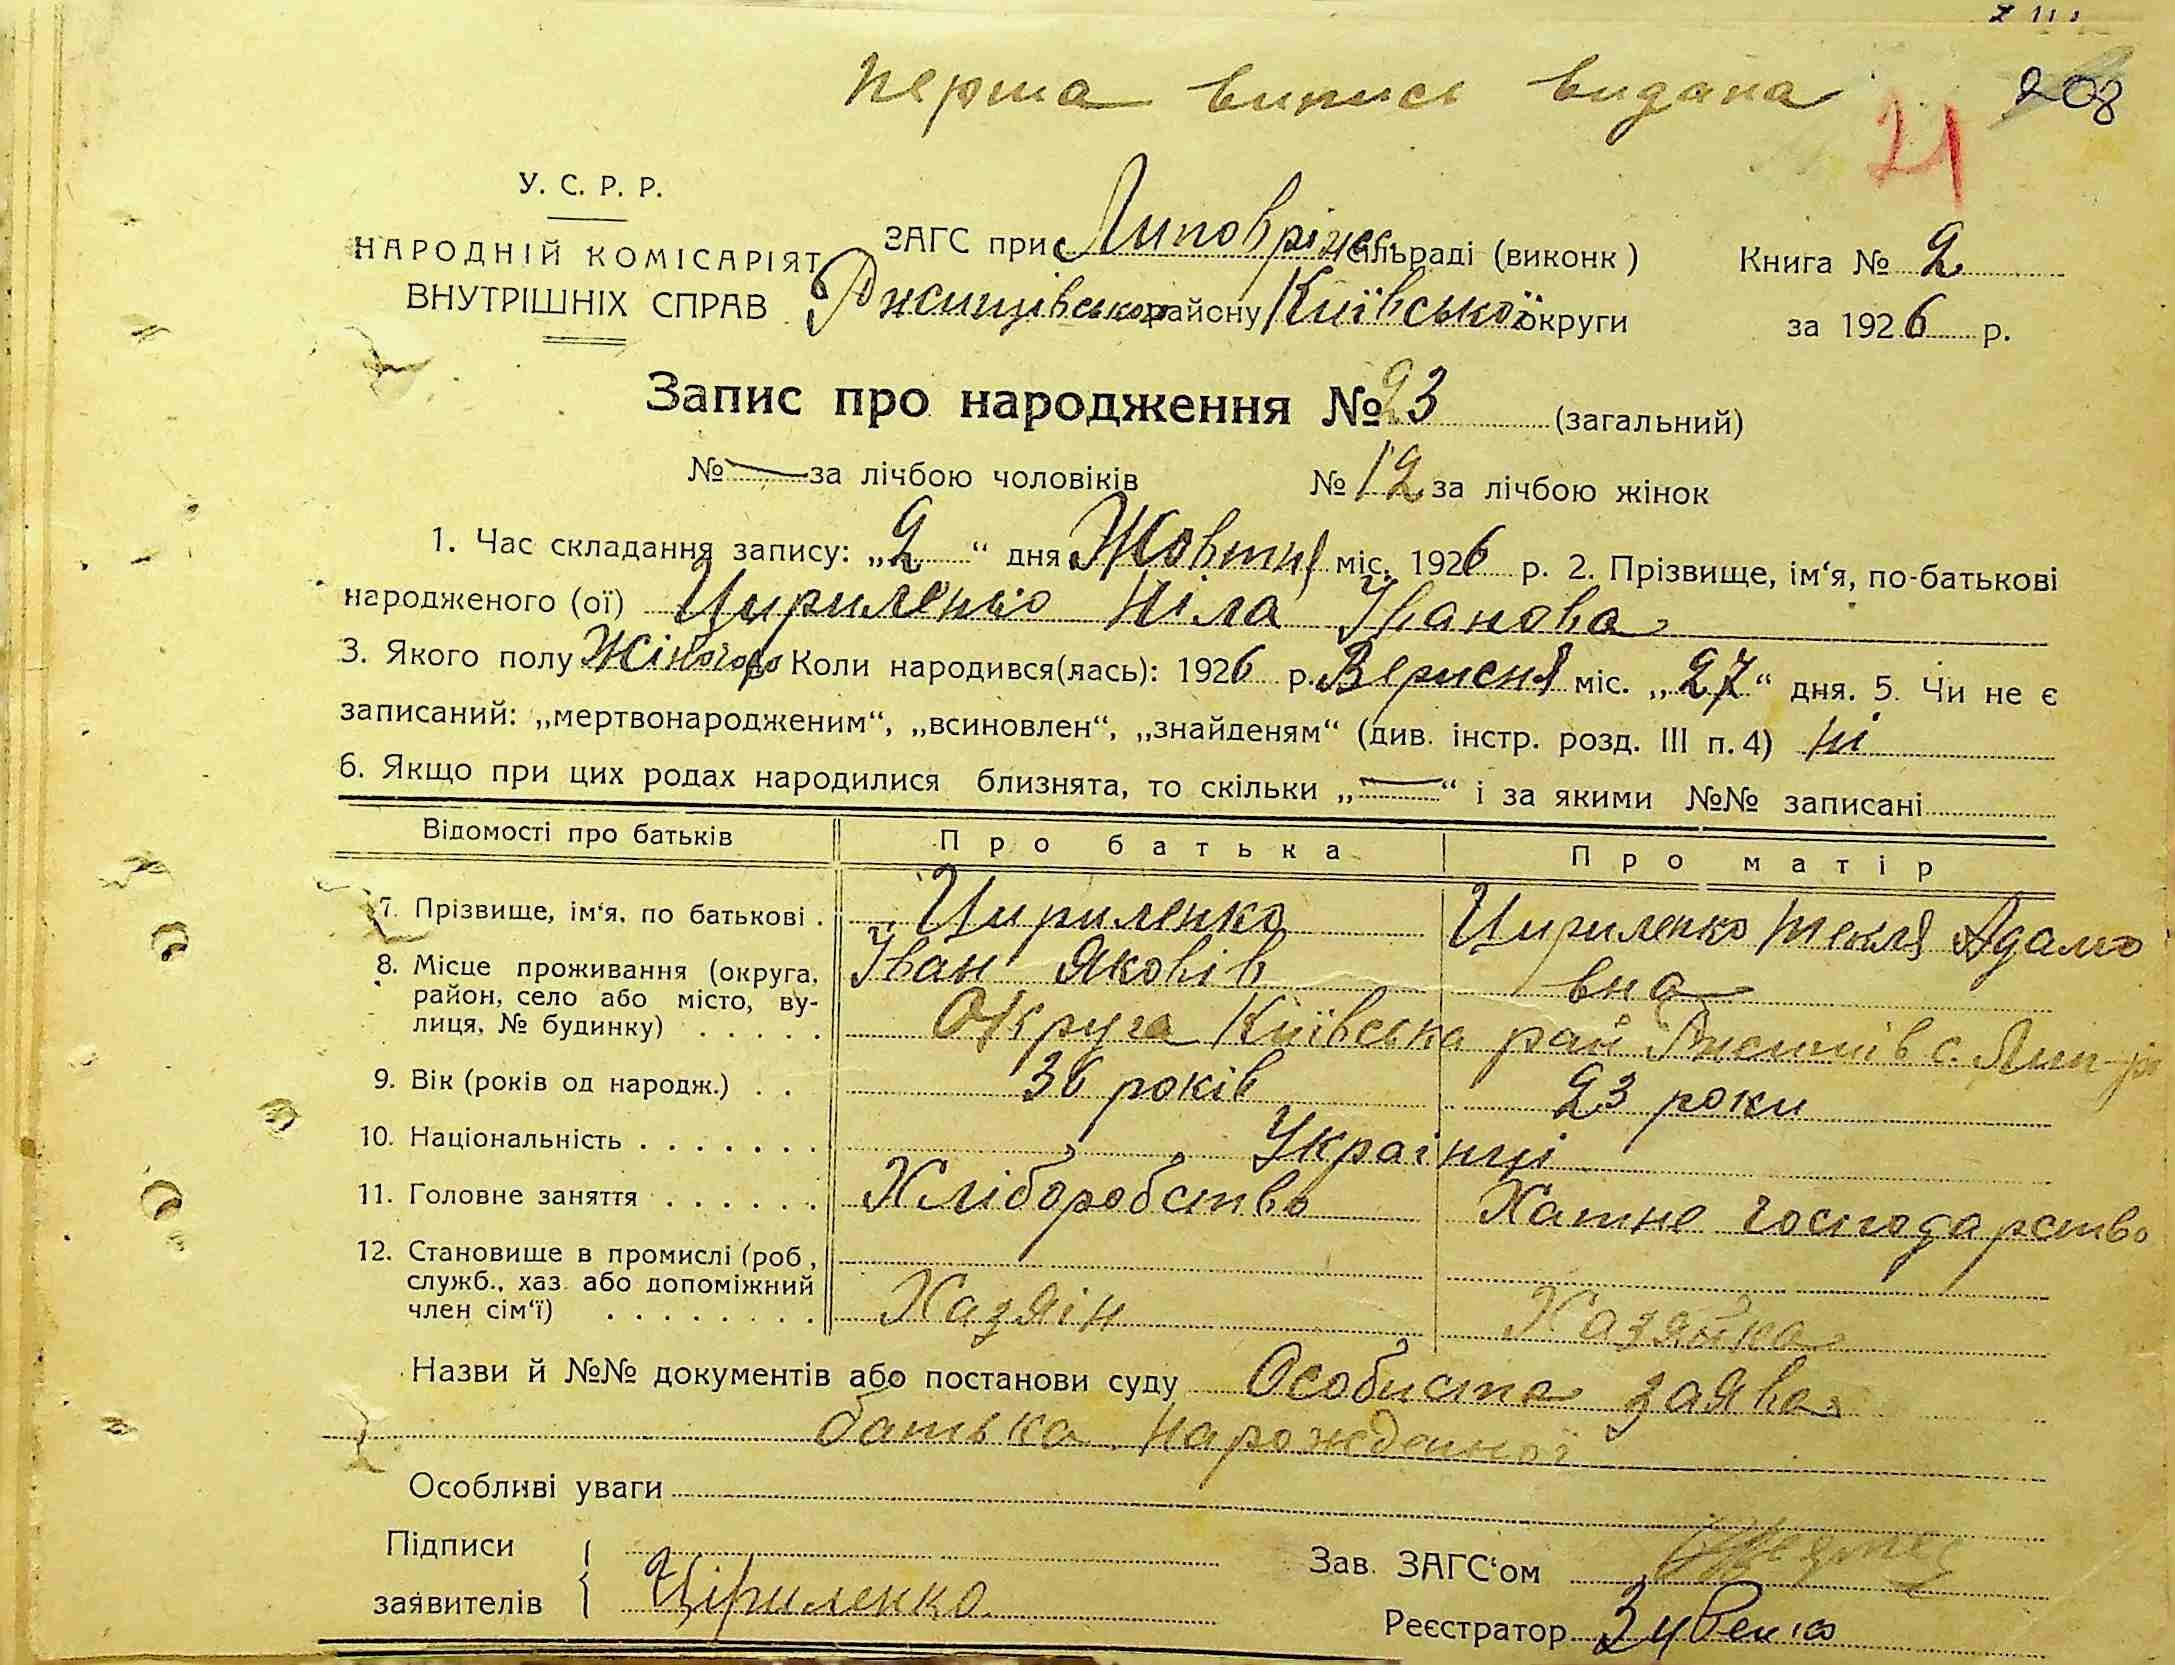 перша випись видана
21
208
У. С. Р. Р.
НАРОДНІЙ КОМІСАРІЯТ
ВНУТРІШНІХ СПРАВ
ЗАГС при Липоврізьк сільраді (виконк)
Ржищівського району Київської округи
Книга № 2
за 1926 р.
Запис про народження № 23 (загальний)
№ — за лічбою чоловіків № 12 за лічбою жінок
1. Час складання запису: „2“ дня Жовтня міс. 1926 р. 2. Прізвище, ім‘я, по-батькові
народженого (ої) Цириленко Ніла Іванова
3. Якого полу Жіночого Коли народився(лась): 1926 р. Вересня міс. „27“ дня. 5. Чи не є
записаний: „мертвонародженим“, „всиновлен“, „знайденям“ (див. інстр. розд. III п. 4) ні
6. Якщо при цих родах народилися близнята, то скільки „—“ і за якими №№ записані
Відомості про батьків Про батька Про матір
7. Прізвище, ім‘я, по батькові . Цириленко Іван Яковів Цириленко Текля Адамовна
8. Місце проживання (округа,
район, село або місто, ву-
лиця, № будинку) . . . . . Округа Київська рай Ржищів с.
9. Вік (років од народж.) . . 36 років 23 роки
10. Національність . . . . . . . Українці
11. Головне заняття . . . . . . Хліборобство Хатне господарство
12. Становище в промислі (роб,
служб., хаз. або допоміжний
член сім‘ї) . . . . . . . . . Хазяін Хазяйка
Назви й №№ документів або постанови суду Особиста заява
батька нарожденної
Особливі уваги
Підписи
заявителів Ціриленко
Зав. ЗАГС‘ом
Реєстратор